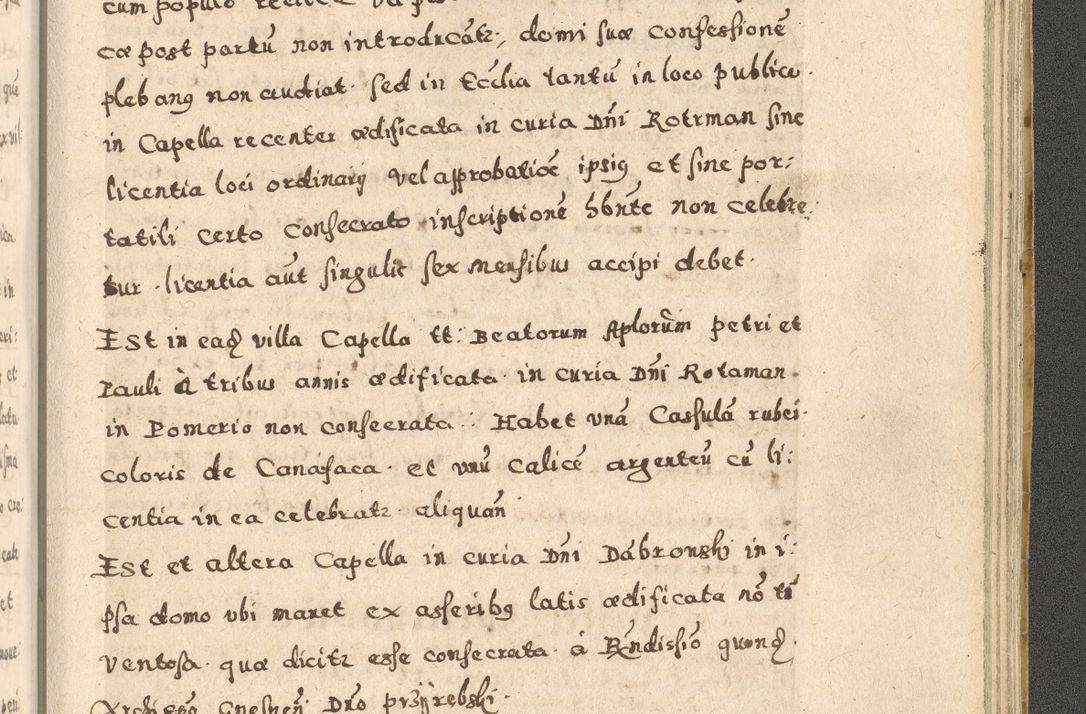 cum populo
cæ post partū non introducātr, domi suæ confessionē
plebang non audiat. sed in Eccłia tantū in loco publico.
in Capella recenter ædificata in curia Dn̄i Rotrman sine
licentia loci ordinarij vel approbatiōe ipsig et sine por:
tatili certo consecrato inscriptionē hbn̄te non celebre:
tur. licentia aūt singulis sex mensibus accipi debet.
Est in ead villa Capella tt: Beatorum Aplorūm Petri et
Pauli à tribus annis ædificata in curia Dn̄i Rotaman.
in Pomerio non consecrata. Habet vnā Cassulā rubei.
coloris de Canafaca. et vnū calicē argenteū cū li:
centia in ea celebratr aliquan̄
Est et altera Capella in curia Dn̄i Dąbronski in i:
psa domo vbi manet ex asseribg latis ædificata nō
ventosa. quæ dicitr esse consecrata. à Rn̄dissiō quond.
Gnesnen̄ Dn̄o przyrębski.